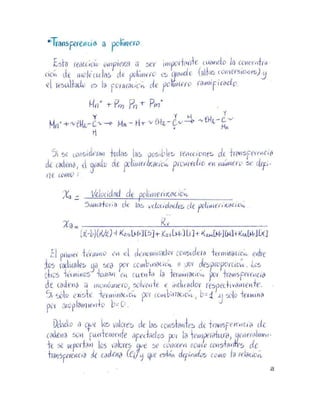 •Transferencia a polímero
Esta reacción empieza a ser importante cuando la concentra-
ción de moléculas de polímero es grande (altas conversiones) y
el resultado es la formación de polímero ramificado.
Mn• + Pm Pn + Pm•
Si se consideran todas las posibles reacciones de transferencia
de cadena, el grado de polimerización promedio en número se defi-
ne como:
Velocidad de polimerización
Sumatoria de las velocidades de polimerización
El primer término en el denominador considera terminación entre
los radicales ya sea por combinación o por desproporción. Los
otros términos toman en cuenta la terminación por transferencia
de cadena a monómero, solvente e iniciador respectivamente.
Si sólo existe terminación por combinación, b=1 y sólo termina
por acoplamiento b=0.
Debido a que los valores de las constantes de transferencia de
cadena son fuertemente afectados por la temperatura, generalmen-
te se reportan los valores que se conocen como constantes de
transferencia de cadena (C) y que están definidos como la relación